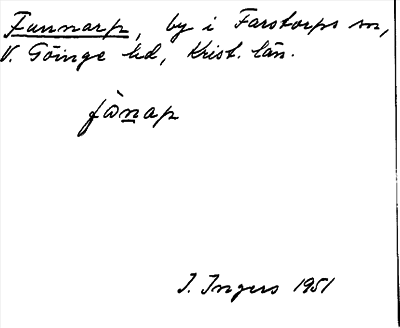 Funnarp, by i Farstorps sn,
V. Göinge hd, Krist. län.
I. Ingers 1951